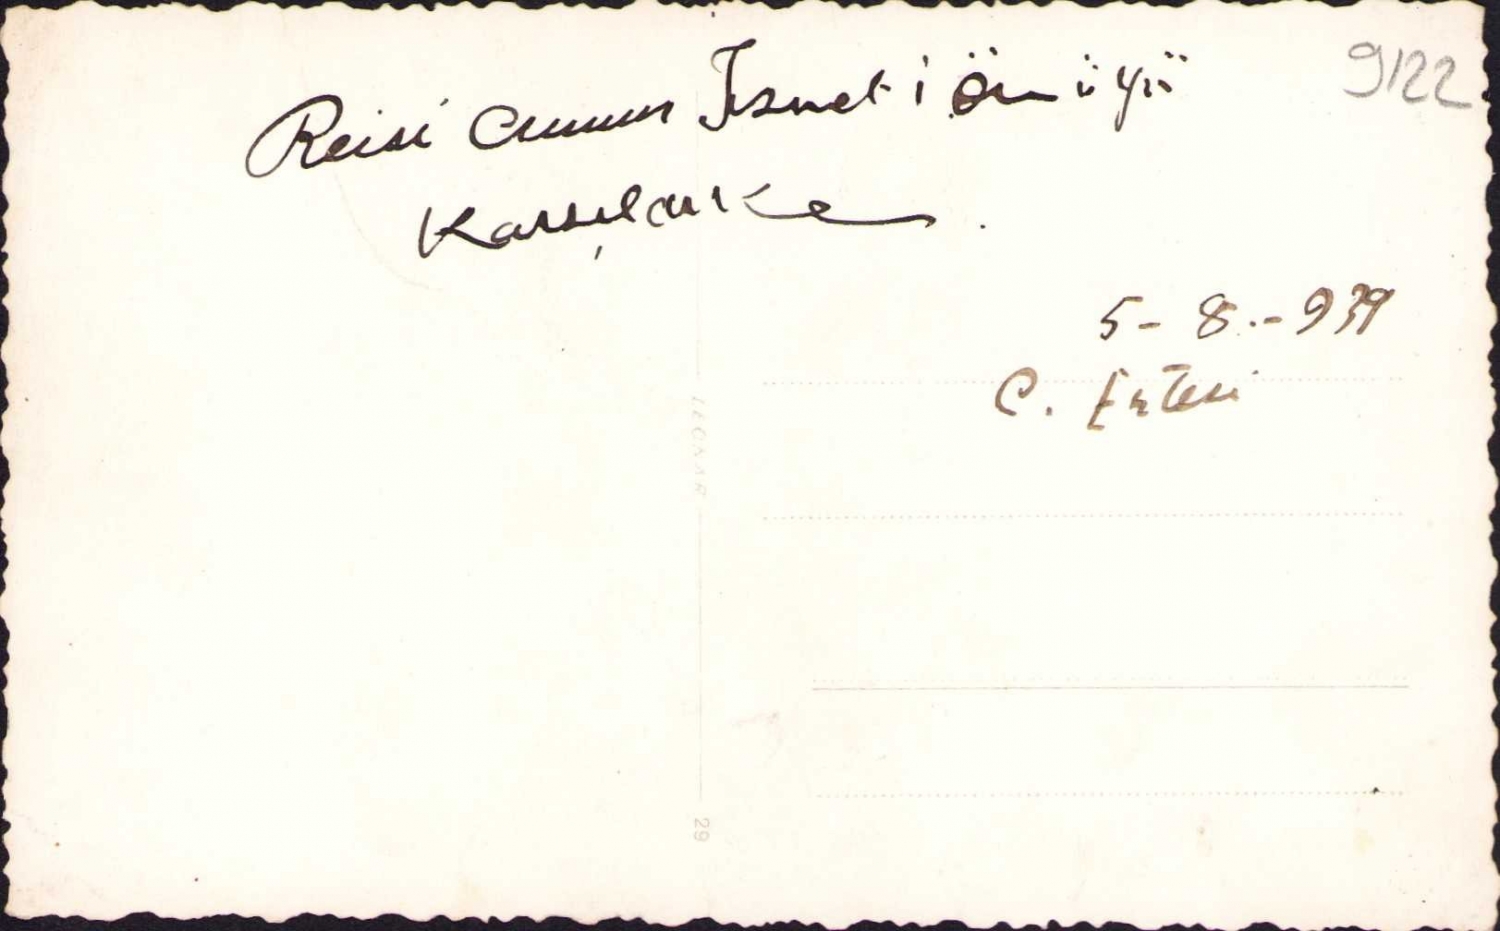 9122
Reisi Cumur İsmet i önüyü
Karşılarke
5-8.-939
C.
LEONAR
29